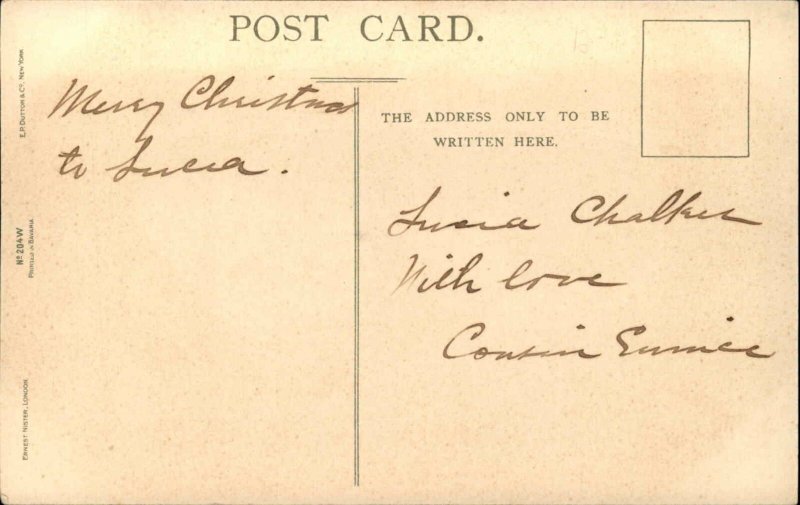 POST CARD.
Merry Christmas
to Lucia.
THE ADDRESS ONLY TO BE
WRITTEN HERE.
Lucia Chalker
With love
Cousin Eunice
E.P. DUTTON & Co. NEW YORK
No 204W
PRINTED IN BAVARIA
ERNEST NISTER, LONDON.